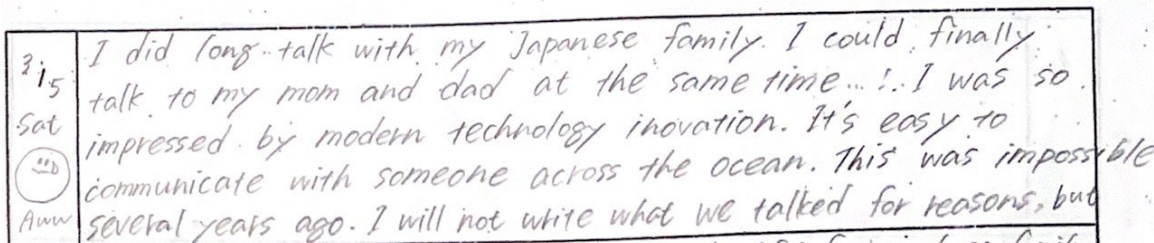 3/15
Sat
Aww
I did long talk with my Japanese family. I could finally
talk to my mom and dad at the same time...! I was so
impressed by modern technology inovation. It's easy to
communicate with someone across the ocean. This was impossible
several years ago. I will not write what we talked for reasons, but